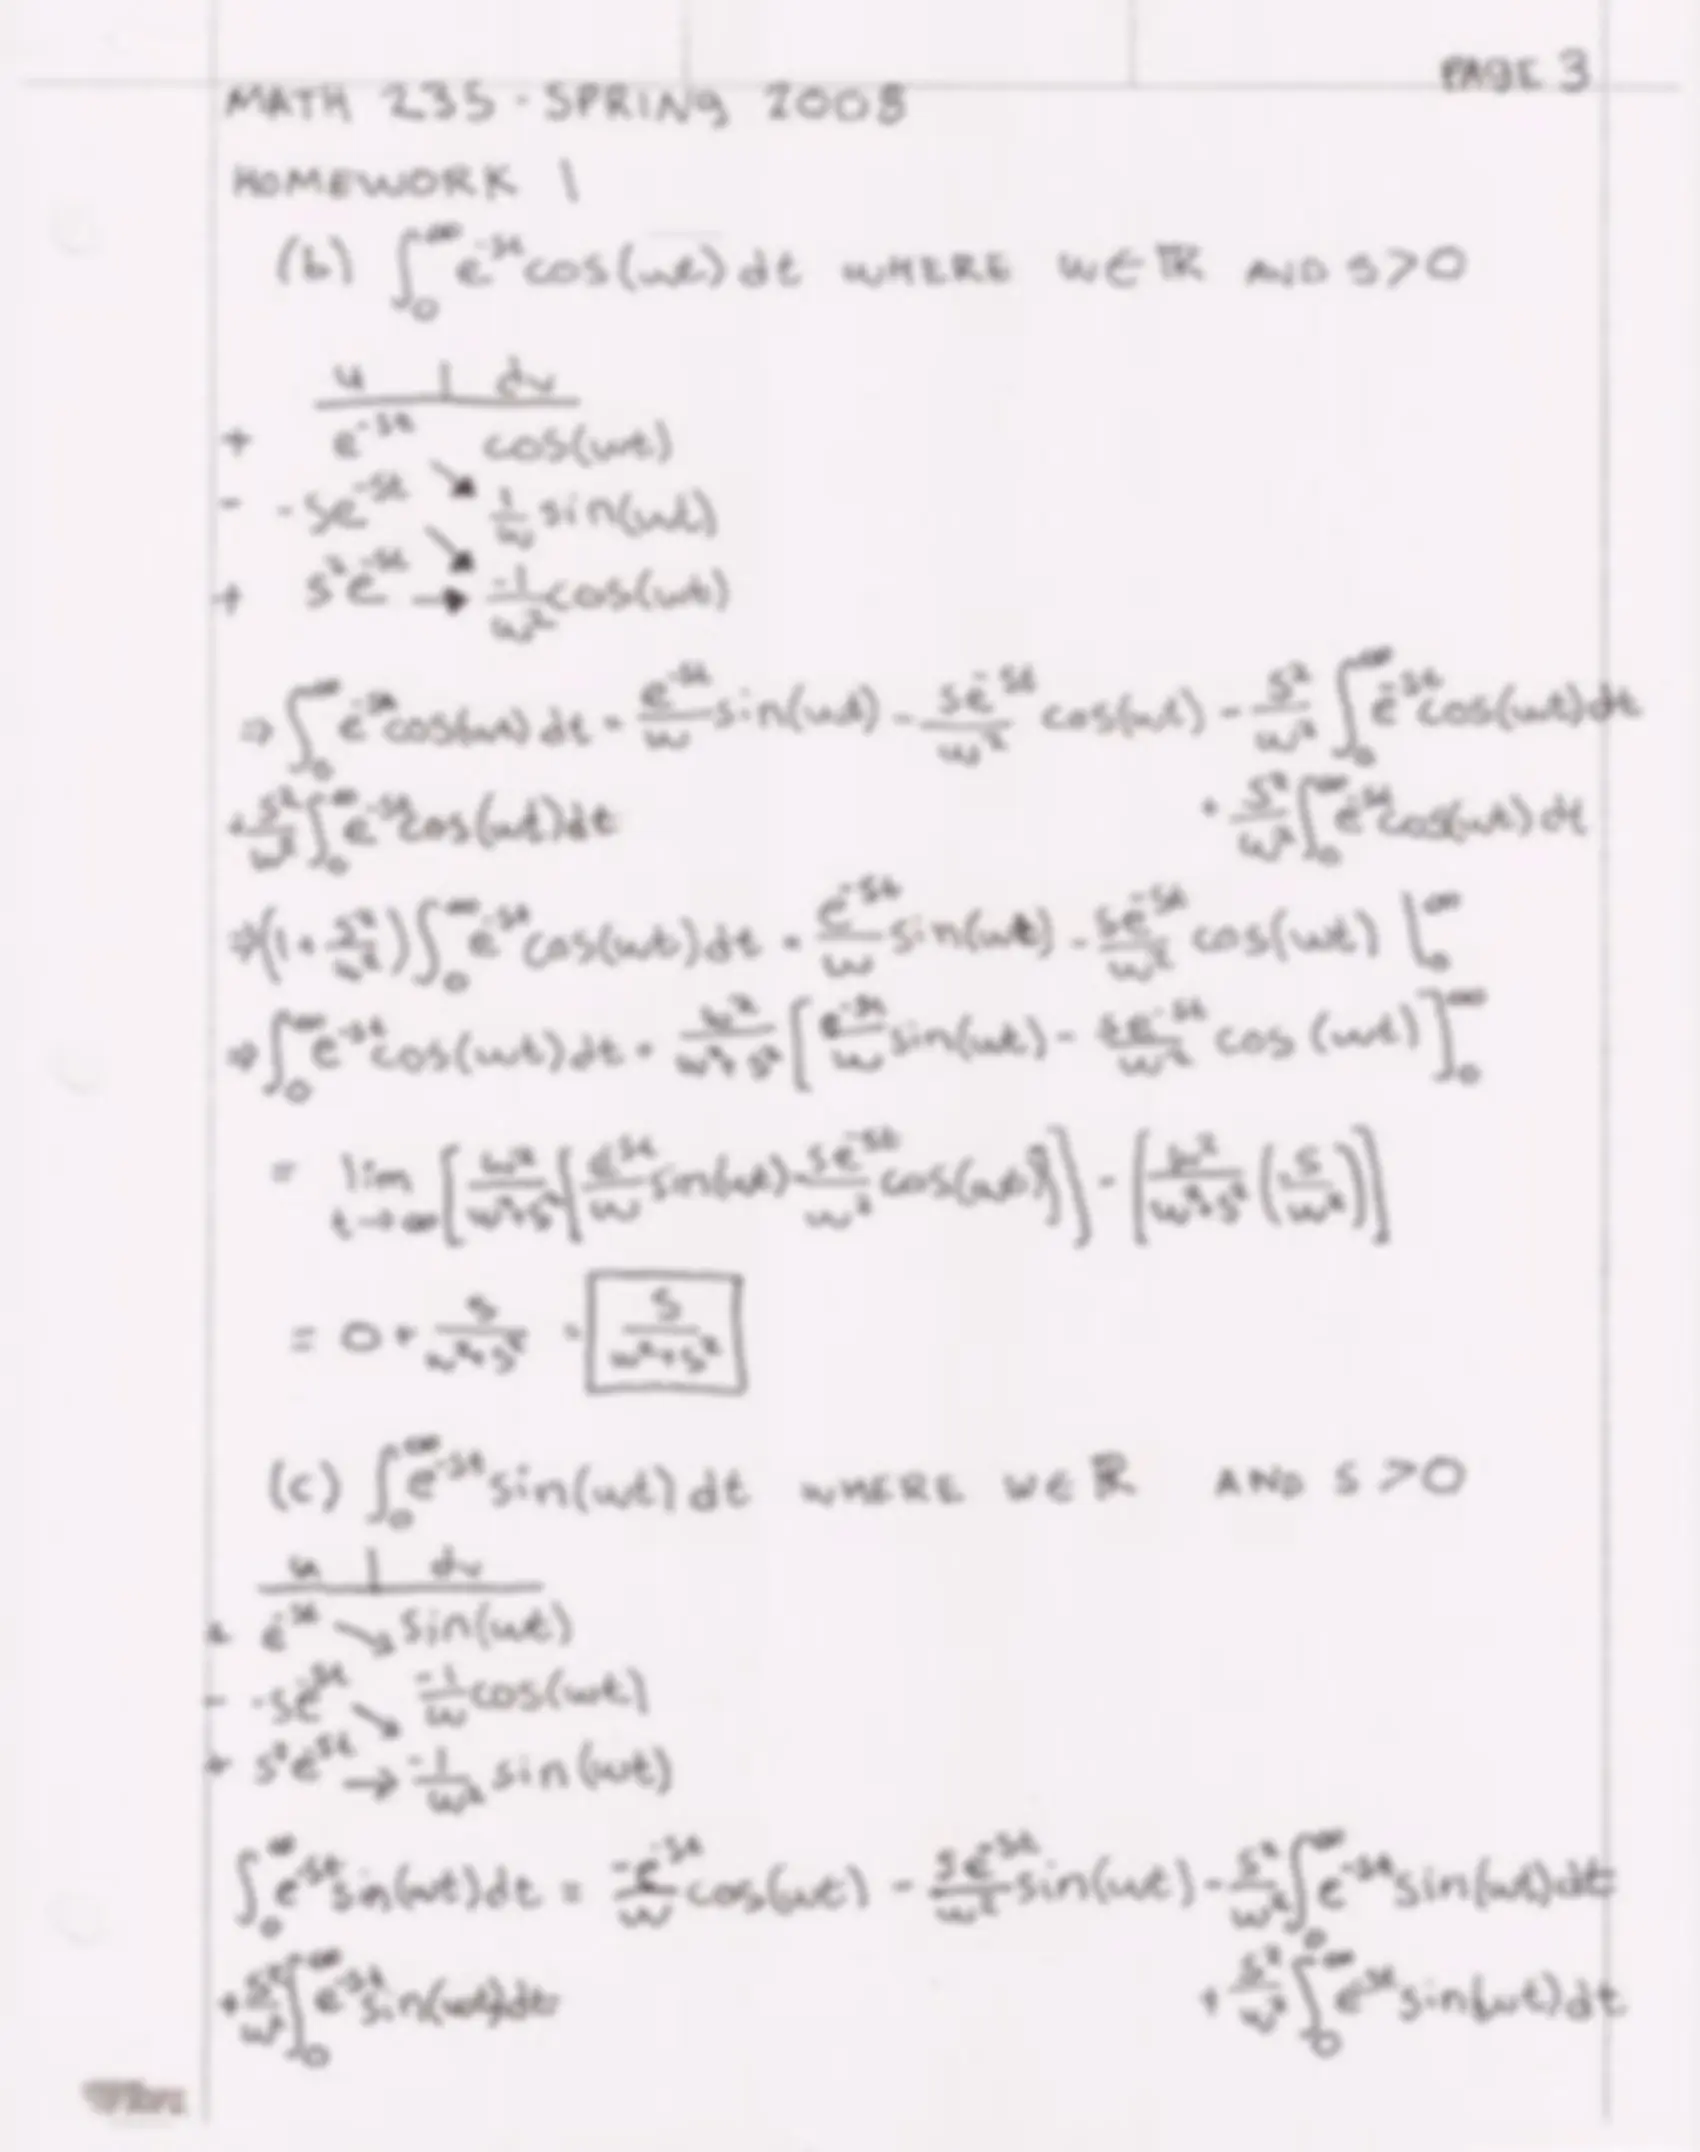 PAGE 3
MATH 235 - SPRING 2008
HOMEWORK 1
(b) ∫₀^∞ e^{-st} cos(wt) dt WHERE w ∈ ℝ AND s > 0
u | dv
+ e^{-st} cos(wt)
- -se^{-st} 1/w sin(wt)
+ s²e^{-st} → -1/w² cos(wt)
⇒ ∫₀^∞ e^{-st} cos(wt) dt = e^{-st}/w sin(wt) - se^{-st}/w² cos(wt) - s²/w² ∫₀^∞ e^{-st} cos(wt) dt
+ s²/w² ∫₀^∞ e^{-st} cos(wt) dt + s²/w² ∫₀^∞ e^{-st} cos(wt) dt
⇒ (1 + s²/w²) ∫₀^∞ e^{-st} cos(wt) dt = e^{-st}/w sin(wt) - se^{-st}/w² cos(wt) |₀^∞
⇒ ∫₀^∞ e^{-st} cos(wt) dt = w²/(w²+s²) [e^{-st}/w sin(wt) - se^{-st}/w² cos(wt)]₀^∞
= lim t→∞ [w²/(w²+s²) [e^{-st}/w sin(wt) - se^{-st}/w² cos(wt)]] - [w²/(w²+s²) (s/w²)]
= 0 + s/(w²+s²) = s/(w²+s²)
(c) ∫₀^∞ e^{-st} sin(wt) dt WHERE w ∈ ℝ AND s > 0
u | dv
+ e^{-st} ↘ sin(wt)
- -se^{-st} ↘ -1/w cos(wt)
+ s²e^{-st} → -1/w² sin(wt)
∫₀^∞ e^{-st} sin(wt) dt = -e^{-st}/w cos(wt) - se^{-st}/w² sin(wt) - s²/w² ∫₀^∞ e^{-st} sin(wt) dt
+ s²/w² ∫₀^∞ e^{-st} sin(wt) dt + s²/w² ∫₀^∞ e^{-st} sin(wt) dt